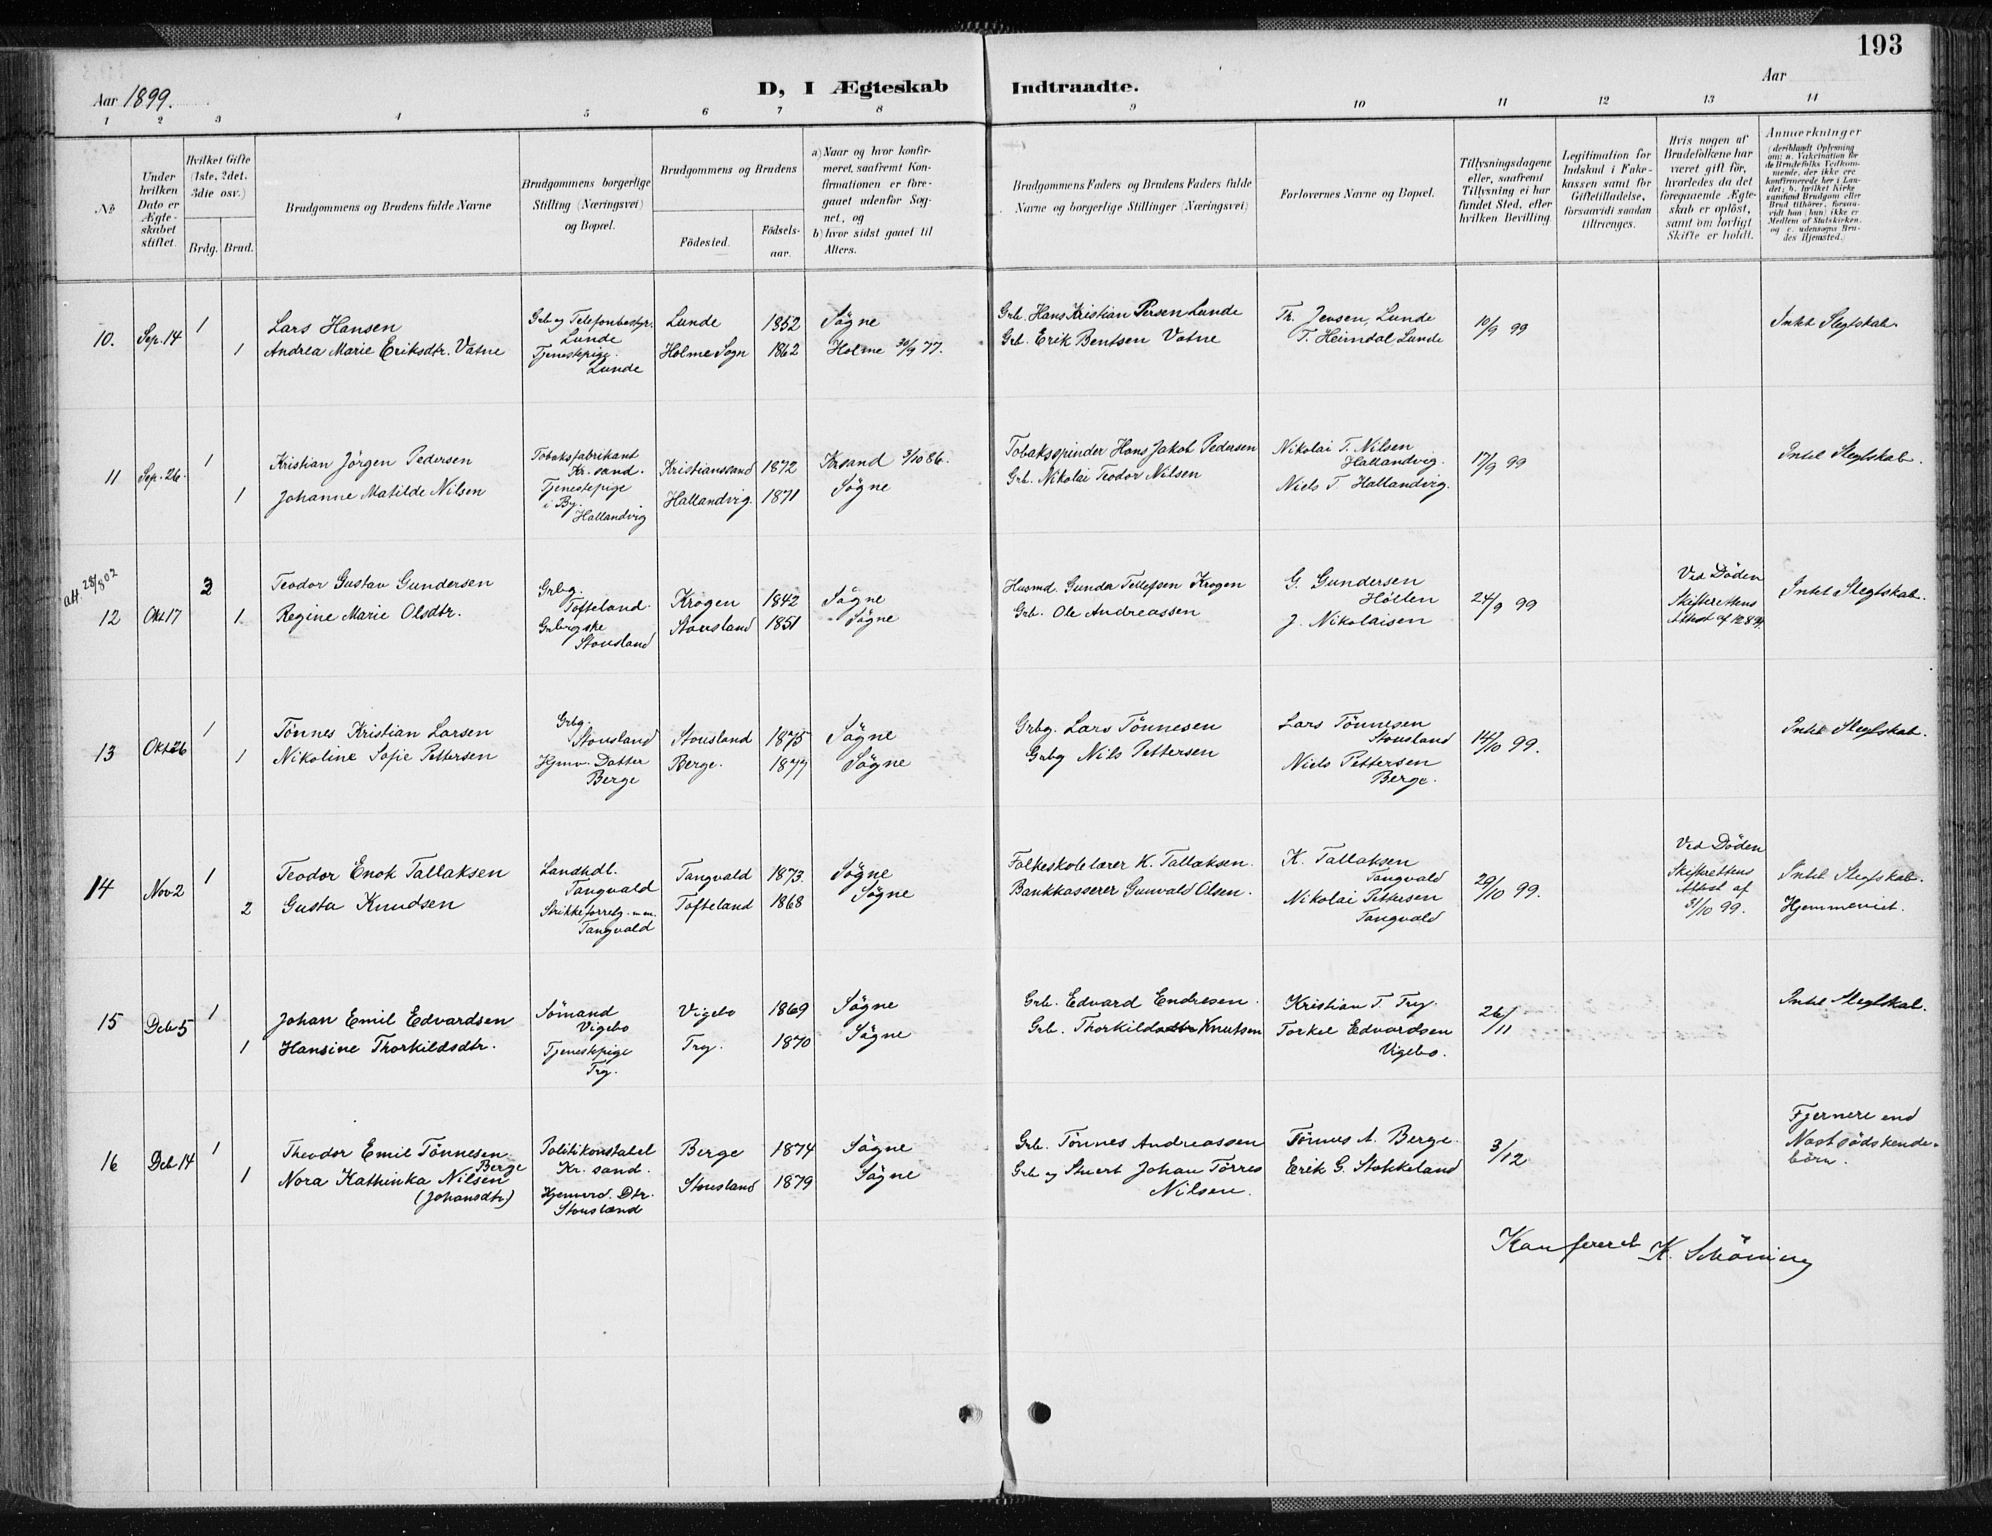 193
Aar 1899. D, I Ægteskab Indtraadte. Aar
1 2 3 4 5 6 7 8 9 10 11 12 13 14
№
Under hvilken Dato er Ægteskabet stiftet.
Hvilket Gifte (1ste, 2det, 3die osv.)
Brdg. Brud.
Brudgommens og Brudens fulde Navne
Brudgommens borgerlige Stilling (Næringsvei) og Bopæl.
Brudgommens og Brudens
Födested. Födsels-aar.
a) Naar og hvor konfirmeret, saafremt Konfirmationen er foregaaet udenfor Sognet, og
b) hvor sidst gaaet til Alters.
Brudgommens Faders og Brudens Faders fulde Navne og borgerlige Stillinger (Næringsvei)
Forlovernes Navne og Bopæl.
Tillysningsdagene eller, saafremt Tillysning ei har fundet Sted, efter hvilken Bevilling.
Legitimation for Indskud i Enkekassen samt for Giftetilladelse, forsaavidt saadan tiltrænges.
Hvis nogen af Brudefolkene har været gift før, hvorledes da det foregaaende Ægteskab er oplöst, samt om lovligt Skifte er holdt.
Anmærkninger (deriblandt Oplysning om: a. Vakcination for de Brudefolks Vedkommende, der ikke ere konfirmerede her i Landet; b. hvilket Kirkesamfund Brudgom eller Brud tilhörer, forsaavidt han (hun) ikke er Medlem af Statskirken, og c. udensogns Brudes Hjemsted.)
10. Sep. 14 1 Lars Hansen Grb. og Telefonbestyr. Lunde Lunde 1852 Sögne Grb. Hans Kristian Persen Lunde Th. Jensen, Lunde 10/9 99 Intet Slegtskab.
1 Andrea Marie Eriksdtr. Vatne Tjenestepige. Lunde Holme Sogn 1862 Holme 30/9 77. Grb. Erik Bentsen Vatne T. Heimdal Lunde
11 Sep. 26. 1 Kristian Jörgen Pedersen Tobaksfabrikant Kr.sand. Kristianssand 1872 Krsand 3/10 86. Tobaksspinder Hans Jakob Pedersen Nikolai T. Nilsen Hallandvig. 17/9 99 Intet Slegtskab.
1 Johanne Matilde Nilsen Tjenestepige i By. Hallandvig Hallandvig. 1871 Sögne Grb. Nikolai Teodor Nilsen Niels T. Hallandvig.
att. 28/8 02
12 Okt 17 2 Teodor Gustav Gundersen Grbg. Tofteland. Krogen 1842 Sögne Husmd. Gunder Tellefsen Krogen G. Gundersen Höllen 24/9 99 Ved Döden Skifterettens Attest af Intet Slegtskab.
1. Regine Marie Olsdtr. Stousland Stousland 1851 Sögne Grb. Ole Andreassen J. Nikolaisen
13 Okt 26 1 Tönnes Kristian Larsen Grbg. Stousland Stousland 1875 Sögne Grbg. Lars Tönnesen Lars Tönnesen Stousland 14/10 99. Intet Slegtskab.
1 Nikoline Sofie Pettersen Hjmv. Datter Berge Berge. 1877 Sögne Grbg Nils Pettersen Niels Pettersen Berge.
14 Nov 2 1 Teodor Enok Tallaksen Landhdl. Tangvald Tangvald 1873. Sögne Folkeskolelærer K. Tallaksen. K. Tallaksen Tangvald 29/10 99. Ved Döden Skifterettens Attest af 31/10 99. Intet Slegtskab. Hjemmeviet.
2 Gusta Knudsen Strikkeforretg. m.m. Tangvald Tofteland 1868 Sögne Bankkasserer Gunvald Olsen. Nikolai Pettersen Tangvald
15 Deb 5 1 Johan Emil Edvardsen Sömand Vigebo Vigebo 1869 Sögne Grb. Edvard Endresen. Kristian T. Try. 26/11 Intet Slegtskab.
1 Hansine Thorkildsdtr. Tjenestepige Try. Try. 1870 Sögne Grb. Thorkild Knutsen Torkel Edvardsen Vigebo.
16 Deb 14 1 Theodor Emil Tönnesen Berge Politikonstabel Kr. sand. Berge 1874 Sögne Grb. Tönnes Andreassen Tönnes A. Berge. 3/12 Fjernere end Næstsödskendebörn.
1 Nora Kathinka Nilsen (Johansdtr) Hjemv. Dtr. Stousland Stousland 1879 Sögne Grb og Stuert Johan Törres Nilsen. Erik G. Stokkeland
Konfereret K. Schöning